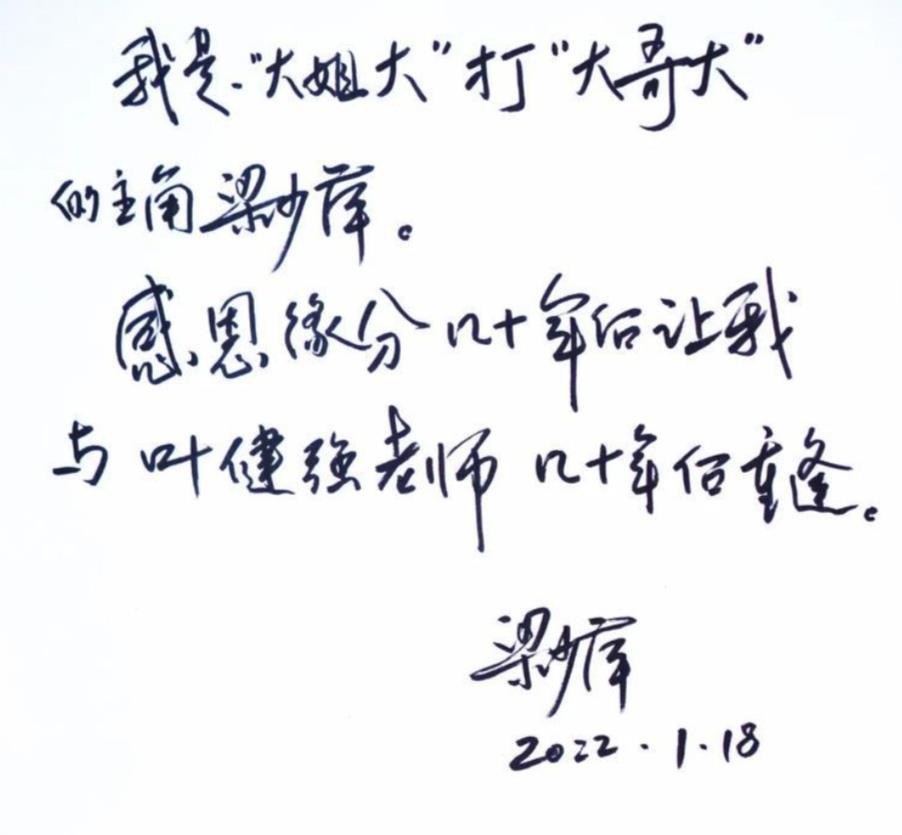 我是“大姐大”打“大哥大”
的主角梁。
感恩缘分几十年后让我
与叶健强老师几十年后重逢。
梁
2022.1.18